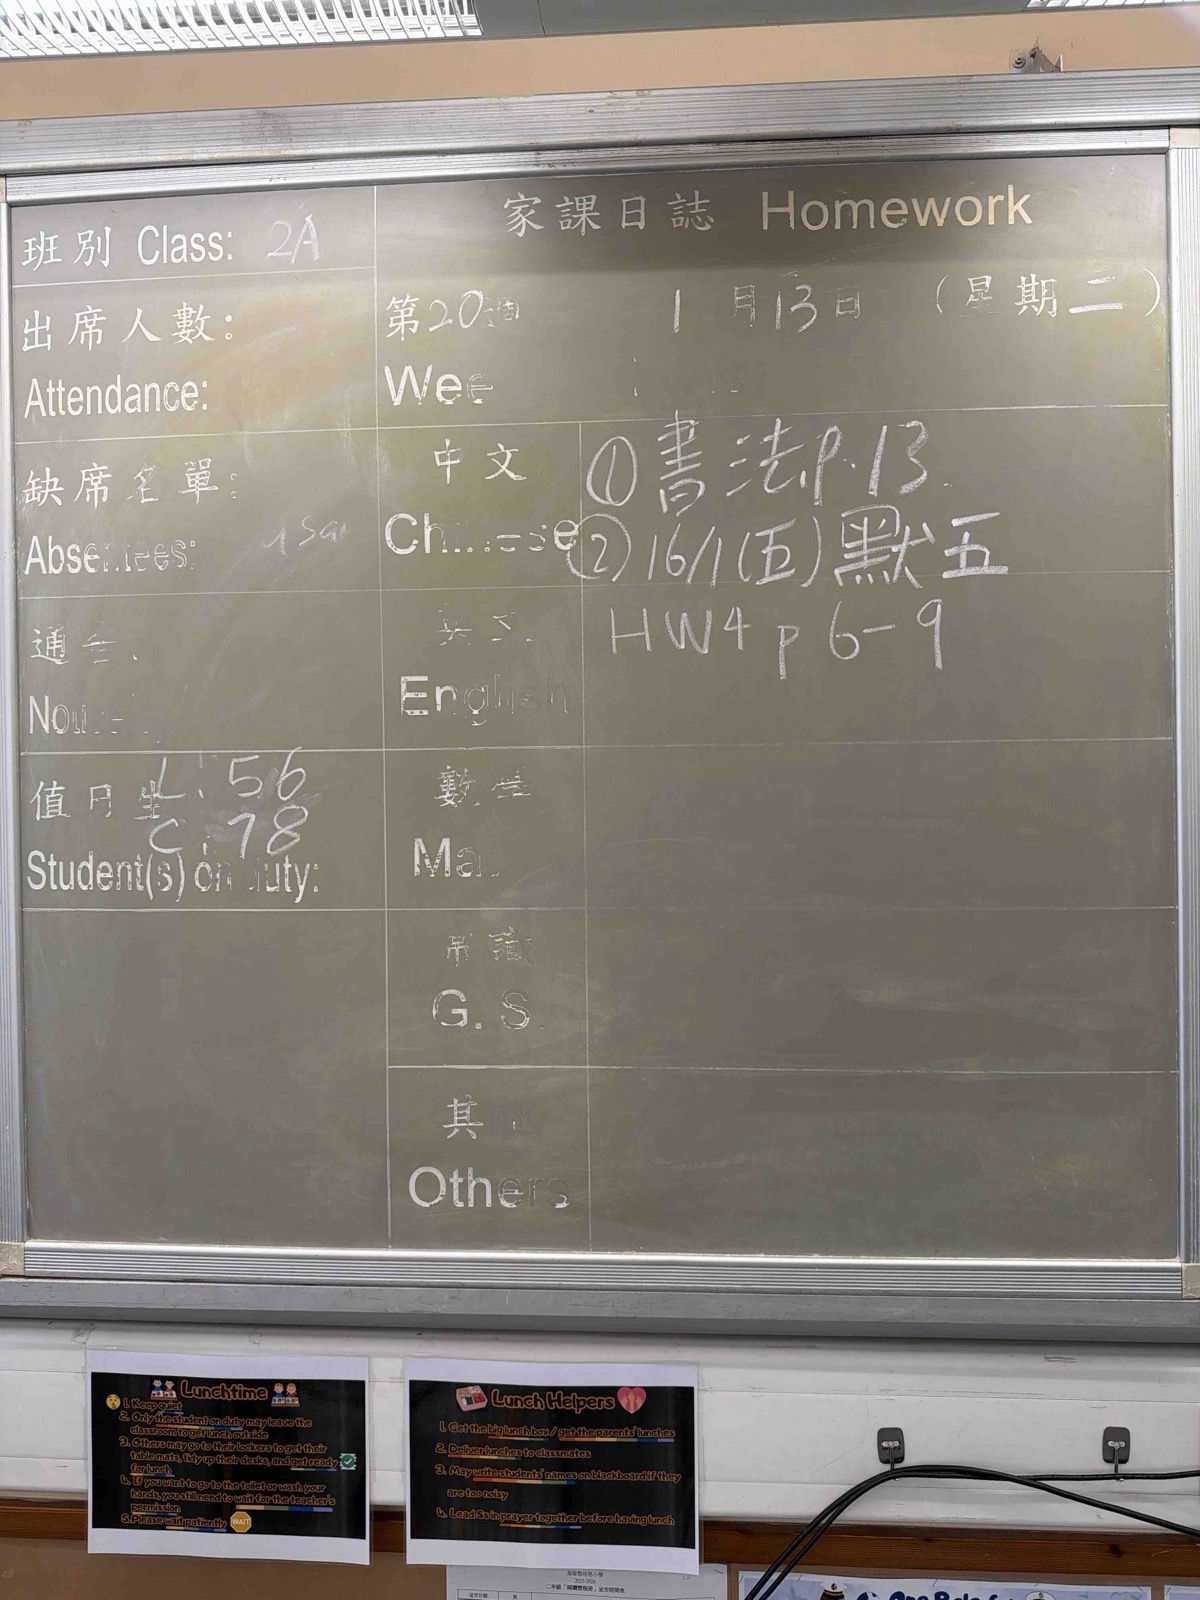 家課日誌 Homework
班別 Class: 2A
出席人數:
Attendance:
第20週 1月13日 (星期二)
Wee
缺席名單:
Absentees:
中文
Chinese
①書法P.13.
②16/1(五)默五
英文
English
HW4 p 6-9
通告
值日生 L: 56
C: 78
Student(s) on duty:
數學
Ma
常識
G. S.
其
Others
Lunchtime
1. Keep quiet
2. Only the student on duty may leave the
classroom to get lunch outside
3. Others may go to their lockers to get their
table mats, tidy up their desks, and get ready
for lunch
4. If you want to go to the toilet or wash your
hands, you still need to wait for the teacher's
permission
5. Please wait patiently WAIT
Lunch Helpers
1. Get the big lunch box / get the parents' lunches
2. Deliver lunches to classmates
3. May write students' names on blackboard if they
are too noisy
4. Lead Ss in prayer together before having lunch
2025-2026